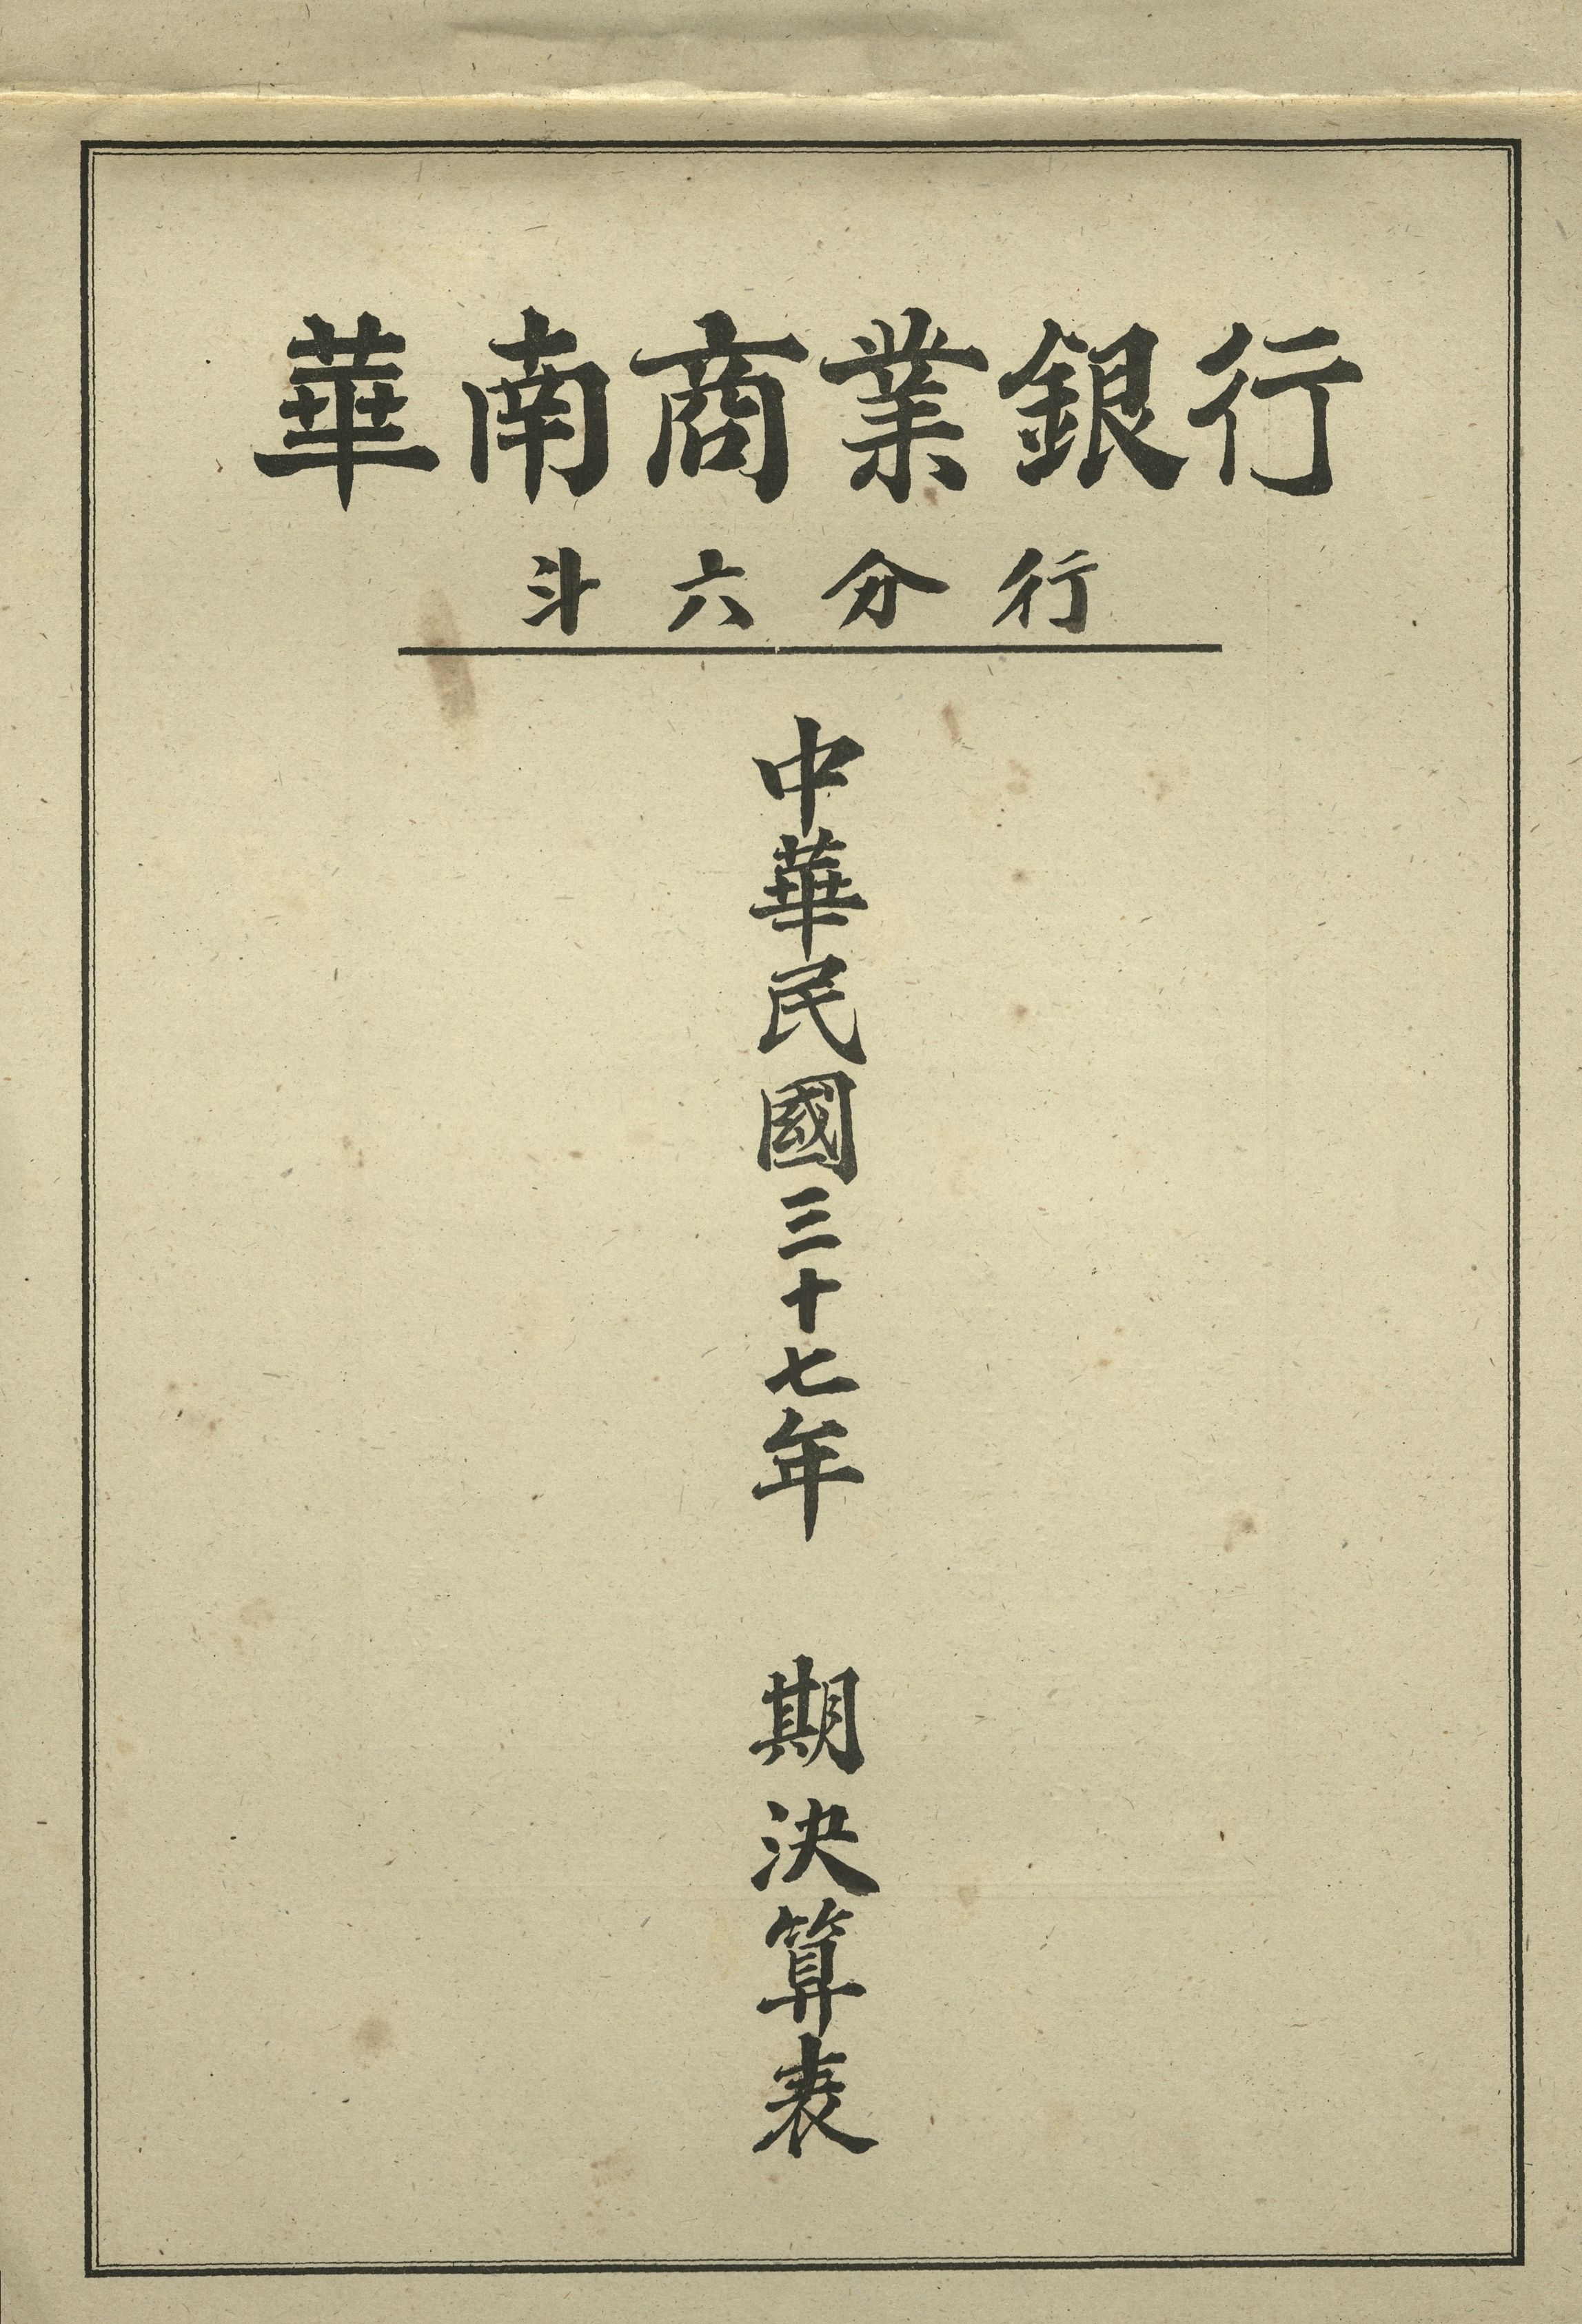 華南商業銀行
斗六分行
中華民國三十七年 期決算表